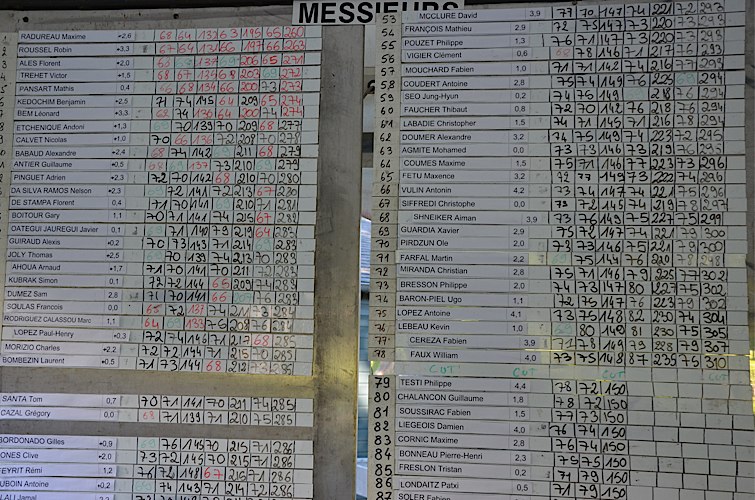 MESSIEURS
RADUREAU Maxime +2,6 68 64 132 63 195 65 260
ROUSSEL Robin +3,3 67 64 131 66 197 66 263
ALES Florent +2,0 206 65 271
TREHET Victor +1,5 68 67 272
PANSART Mathis 0,4 66 68 134 66 200 73 273
KEDOCHIM Benjamin +2,5 71 74 145 64 209 65 274
BEM Léonard +3,3 74 136 64 200 74 274
ETCHENIQUE Andoni +1,3 70 139 70 209 68 277
CALVET Nicolas +1,0 70 66 136 72 208
BABAUD Alexandre +2,4 68 74 142 211 68 279
ANTIER Guillaume +0,5 137 73 210
PINGUET Adrien +2,3 72 70 142 68 210 70 280
DA SILVA RAMOS Nelson +2,3 72 141 72 213 67 280
DE STAMPA Florent 0,4 71 70 141 210 281
BOITOUR Gary 1,1 70 71 141 74 215 67 282
OATEGUI JAUREGUI Javier 0,1 71 140 79 219 64 283
GUIRAUD Alexis +0,2 70 73 143 71 214 283
JOLY Thomas +2,5 70 139 74 213 70 283
AHOUA Arnaud +1,7 71 70 141 70 211 72 283
KUBRAK Simon 0,1 72 72 144 65 209 74 283
DUMEZ Sam 2,8 71 70 141 66 76 283
SOULAS Francois 0,0 65 72 137 74 211 73 284
RODRIGUEZ CALASSOU Marc 1,1 64 133 208 76 284
LOPEZ Paul-Henry +0,3 72 74 146 71 217 68 285
MORIZIO Charles +2,2 72 72 144 71 215 70 285
BOMBEZIN Laurent +0,5 71 73 144 68 212 73 285
SANTA Tom 0,7 70 71 141 70 211 74 285
CAZAL Grégory 0,0 68 71 139 71 210 75 285
BORDONADO Gilles +0,9 76 145 70 215 71 286
JONES Clive +2,0 73 72 145 70 215 71 286
1,2 76 72 148 67 215 71 286
Antoine +0,2 74 143 71 214 72 286
53 MCCLURE David 3,9 77 70 147 74 221 72 293
54 FRANÇOIS Mathieu 2,9 72 75 147 73 220 73 293
55 POUZET Philippe 1,3 76 71 147 73 220 73 293
56 VIGIER Clément 0,6 78 146 71 217 76 293
57 MOUCHARD Fabien 1,0 71 71 142 74 216 77 293
58 COUDERT Antoine 2,8 75 74 149 76 225 294
59 SEO Jung-Hyun 0,2 74 75 149 218 76 294
60 FAUCHER Thibault 0,8 72 70 142 76 218 76 294
61 LABADIE Christopher 1,5 74 71 145 71 216 78 294
62 DOUMER Alexandre 3,2 74 75 149 74 223 72 295
63 AGMITE Mohamed 0,0 73 73 146 73 219 76 295
64 COUMES Maxime 1,5 75 71 146 77 223 73 296
65 FETU Maxence 3,2 72 77 149 73 222 74 296
66 VULIN Antonin 4,2 73 74 147 74 221 75 296
67 SIFFREDI Christophe 0,0 73 72 145 74 219 78 297
68 SHNEIKER Aiman 3,9 73 76 149 75 227 75 299
69 GUARDIA Xavier 2,9 75 72 147 74 221 79 300
70 PIRDZUN Ole 2,0 73 73 146 75 221 79 300
71 FARFAL Martin 2,2 75 144 76 220 80 300
72 MIRANDA Christian 2,8 75 71 146 79 225 77 302
73 BRESSON Philippe 2,0 74 73 147 80 227 75 302
74 BARON-PIEL Ugo 1,1 72 75 147 76 223 79 302
75 LOPEZ Antoine 4,1 73 75 148 82 230 74 304
76 LEBEAU Kevin 1,0 80 140 81 230 75 305
77 CEREZA Fabien 3,9 71 78 149 79 228 79 307
78 FAUX William 4,0 73 75 148 87 235 75 310
CUT CUT CUT
79 TESTI Philippe 4,4 78 72 150
80 CHALANCON Guillaume 1,8 78 72 150
81 SOUSSIRAC Fabien 1,5 77 73 150
82 LIEGEOIS Damien 4,0 76 74 150
83 CORNIC Maxime 2,8 76 74 150
84 BONNEAU Pierre-Henri 2,3 75 75 150
85 FRESLON Tristan 0,2 71 79 150
86 LONDAITZ Patxi 0,5 71 79 150
87 SOLER Fabien